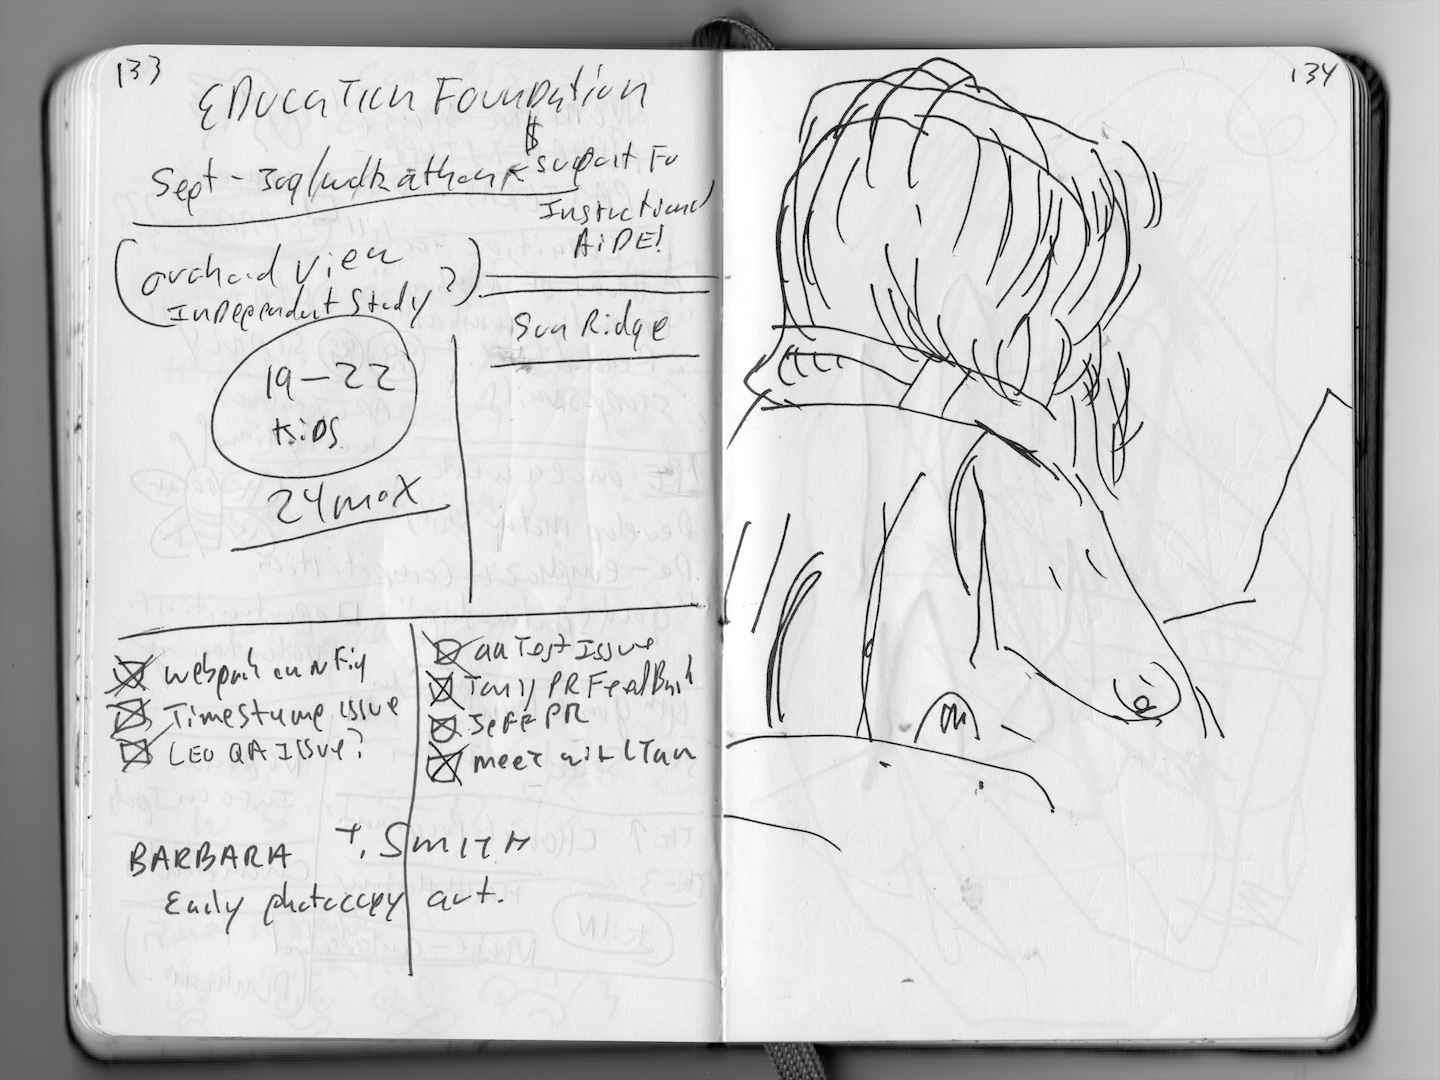 133
EDUCATION FOUNDATION
$
Sept - Jog/walkathon
support For
Instructional
AIDE!
(Orchard View
Independent Study?)
Sun Ridge
19-22
KIDS
24 max
webpack config
Timestamp issue
LEO QA Issue?
QA Test Issue
Tony PR Feedback
JEFF PR
meet with Ian
BARBARA T. SMITH
Early photocopy art.
134